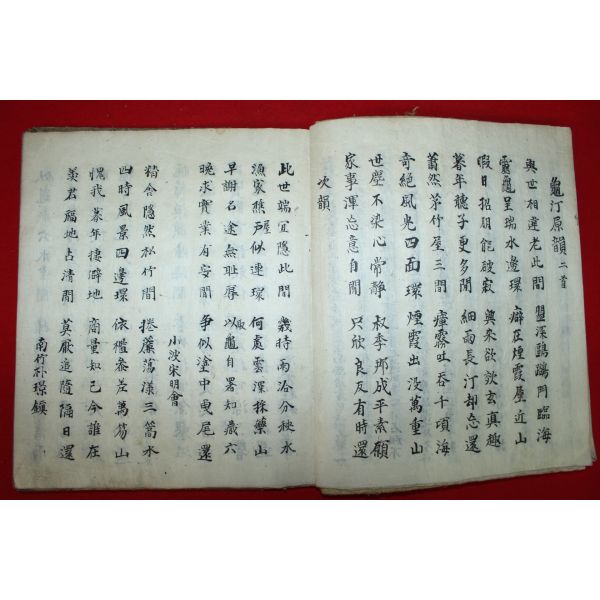 龜汀原韻 二首
與世相違老此間 盟溪鷗鷺門臨海
靈龜呈瑞水邊環 癖在煙霞屋近山
暇日招朋能破寂 興來欲飮玄眞趣
暮年穗子更多閑 細雨長汀却忘還
蕭然茅竹屋三間 虛霧吐吞千頃海
奇絶風光四面環 煙霞出沒萬重山
世塵不染心常靜 叔季那成平素願
家事渾忘意自閒 只欣良友有時還
次韻
此世端宜隱此間 幾時雨洽分秧水
漁家樵屋似連環 何處雲深採藥山
早謝名途無恥辱 以龜自署知藏六
晩求實業有安閒 爭似塗中曳尾還
小波宋明會
精舍隱然松竹間 捲簾蕩漾三篙水
四時風景四邊環 依檻參差萬笏山
愧我暮年棲僻地 商量知己今誰在
羨君福地占清閒 莫厭追隨隔日還
南竹朴璟鎭